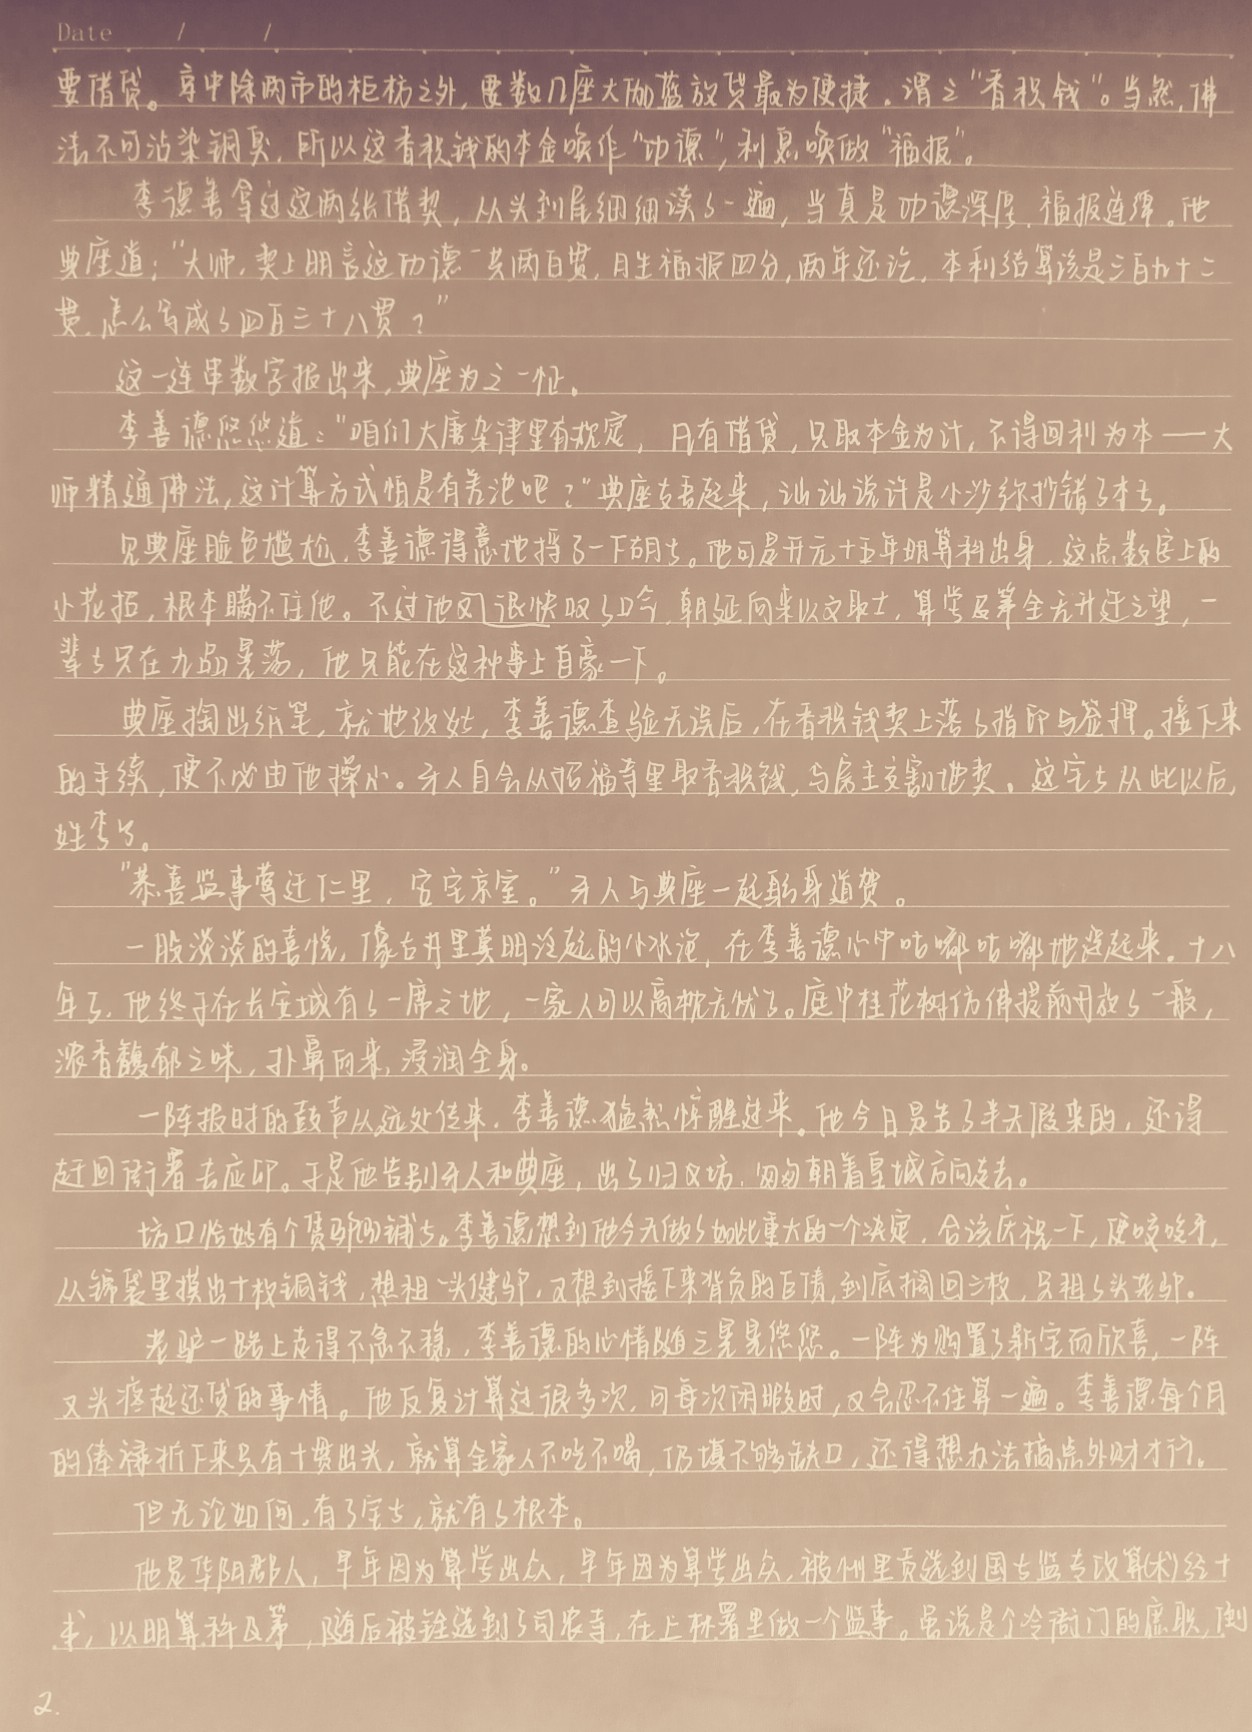 Date / /
要借贷。京中除两市的柜坊之外,要数几座大伽蓝放贷最为便捷,谓之"香积钱"。当然,佛
法不可沾染铜臭,所以这香积钱的本金唤作"功德",利息唤做"福报"。
李德善拿过这两张借契,从头到尾细细读了一遍,当真是功德深厚,福报连绵。他
典座道:"大师,契上明言这功德一共两百贯,月生福报四分,两年还讫,本利结算该是三百九十二
贯,怎么写成了四百三十八贯?"
这一连串数字报出来,典座为之一怔。
李善德悠悠道:"咱们大唐杂律里有规定,凡有借贷,只取本金为计,不得回利为本——大
师精通佛法,这计算方式怕是有差池吧?"典座支吾起来,讪讪说许是小沙弥抄错了本子。
见典座脸色尴尬,李善德得意地捋了一下胡子。他可是开元十五年明算科出身,这点数字上的
小花招,根本瞒不住他。不过他又很快叹了口气,朝廷向来以文取士,算学及第全无升迁之望,一
辈子只在九品晃荡,他只能在这种事上自豪一下。
典座掏出纸笔,就地改好,李善德查验无误后,在香积钱契上落了指印与签押。接下来
的手续,便不必由他操心。牙人自会从招福寺里取香积钱,与房主交割地契。这宅子从此以后,
姓李了。
"恭喜监事莺迁仁里,安宅京室。"牙人与典座一起躬身道贺。
一股淡淡的喜悦,像古井里莫明泛起的小水泡,在李善德心中咕嘟咕嘟地浮起来。十八
年了,他终于在长安城有了一席之地,一家人可以高枕无忧了。庭中桂花树仿佛提前开放了一般,
浓香馥郁之味,扑鼻而来,浸润全身。
一阵报时的鼓声从远处传来,李善德猛然惊醒过来。他今日是告了半天假来的,还得
赶回衙署去应卯。于是他告别牙人和典座,出了归义坊,匆匆朝着皇城方向走去。
坊口恰好有个赁驴的铺子。李善德想到他今天做了如此重大的一个决定,合该庆祝一下,便咬咬牙,
从锦袋里摸出十枚铜钱,想租一头健驴,又想到接下来背负的巨债,到底搁回三枚,只租了头老驴。
老驴一路上走得不急不稳,李善德的心情随之晃晃悠悠。一阵为购置了新宅而欣喜,一阵
又头疼起还贷的事情。他反复计算过很多次,可每次闲暇时,又会忍不住算一遍。李善德每个月
的俸禄折下来只有十贯出头,就算全家人不吃不喝,仍填不够缺口,还得想办法搞点外财才行。
但无论如何,有了宅子,就有了根本。
他是华阴郡人,早年因为算学出众,早年因为算学出众,被州里贡选到国子监专攻算(术)经十
书,以明算科及第,随后被铨选到了司农寺,在上林署里做一个监事。虽说是个冷衙门的庶职,倒
2.